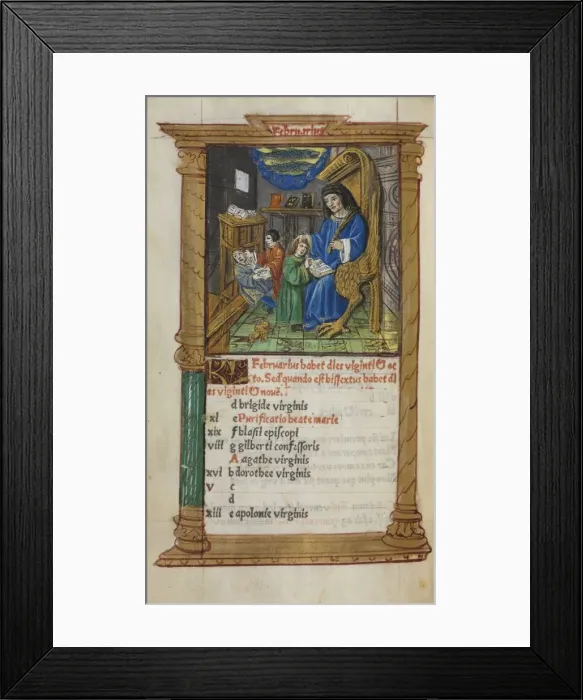 Februarius
KL Februarius habet dies viginti & oc
to. Sed quando est bissextus habet di
es viginti & novē.
d brigide virginis
xi e Purificatio beate marie
xix f blasii episcopi
viii g gilberti confessoris
A agathe virginis
xvi b dorothee virginis
v c
d
xiii e apolonie virginis